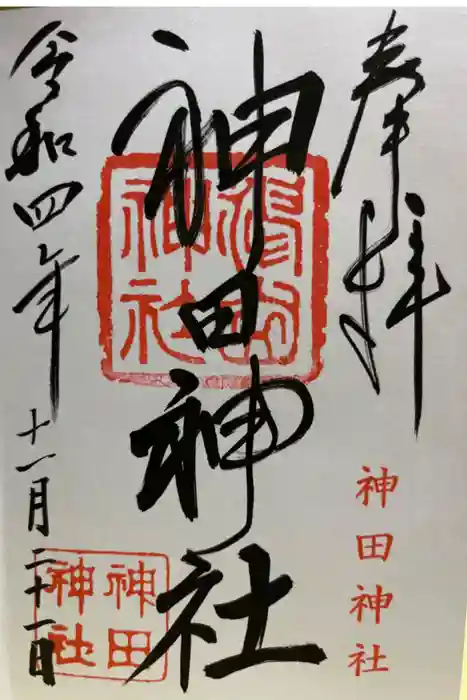 奉拝
神田神社
神田神社
令和四年
十一月二十一日
神田
神社
神社